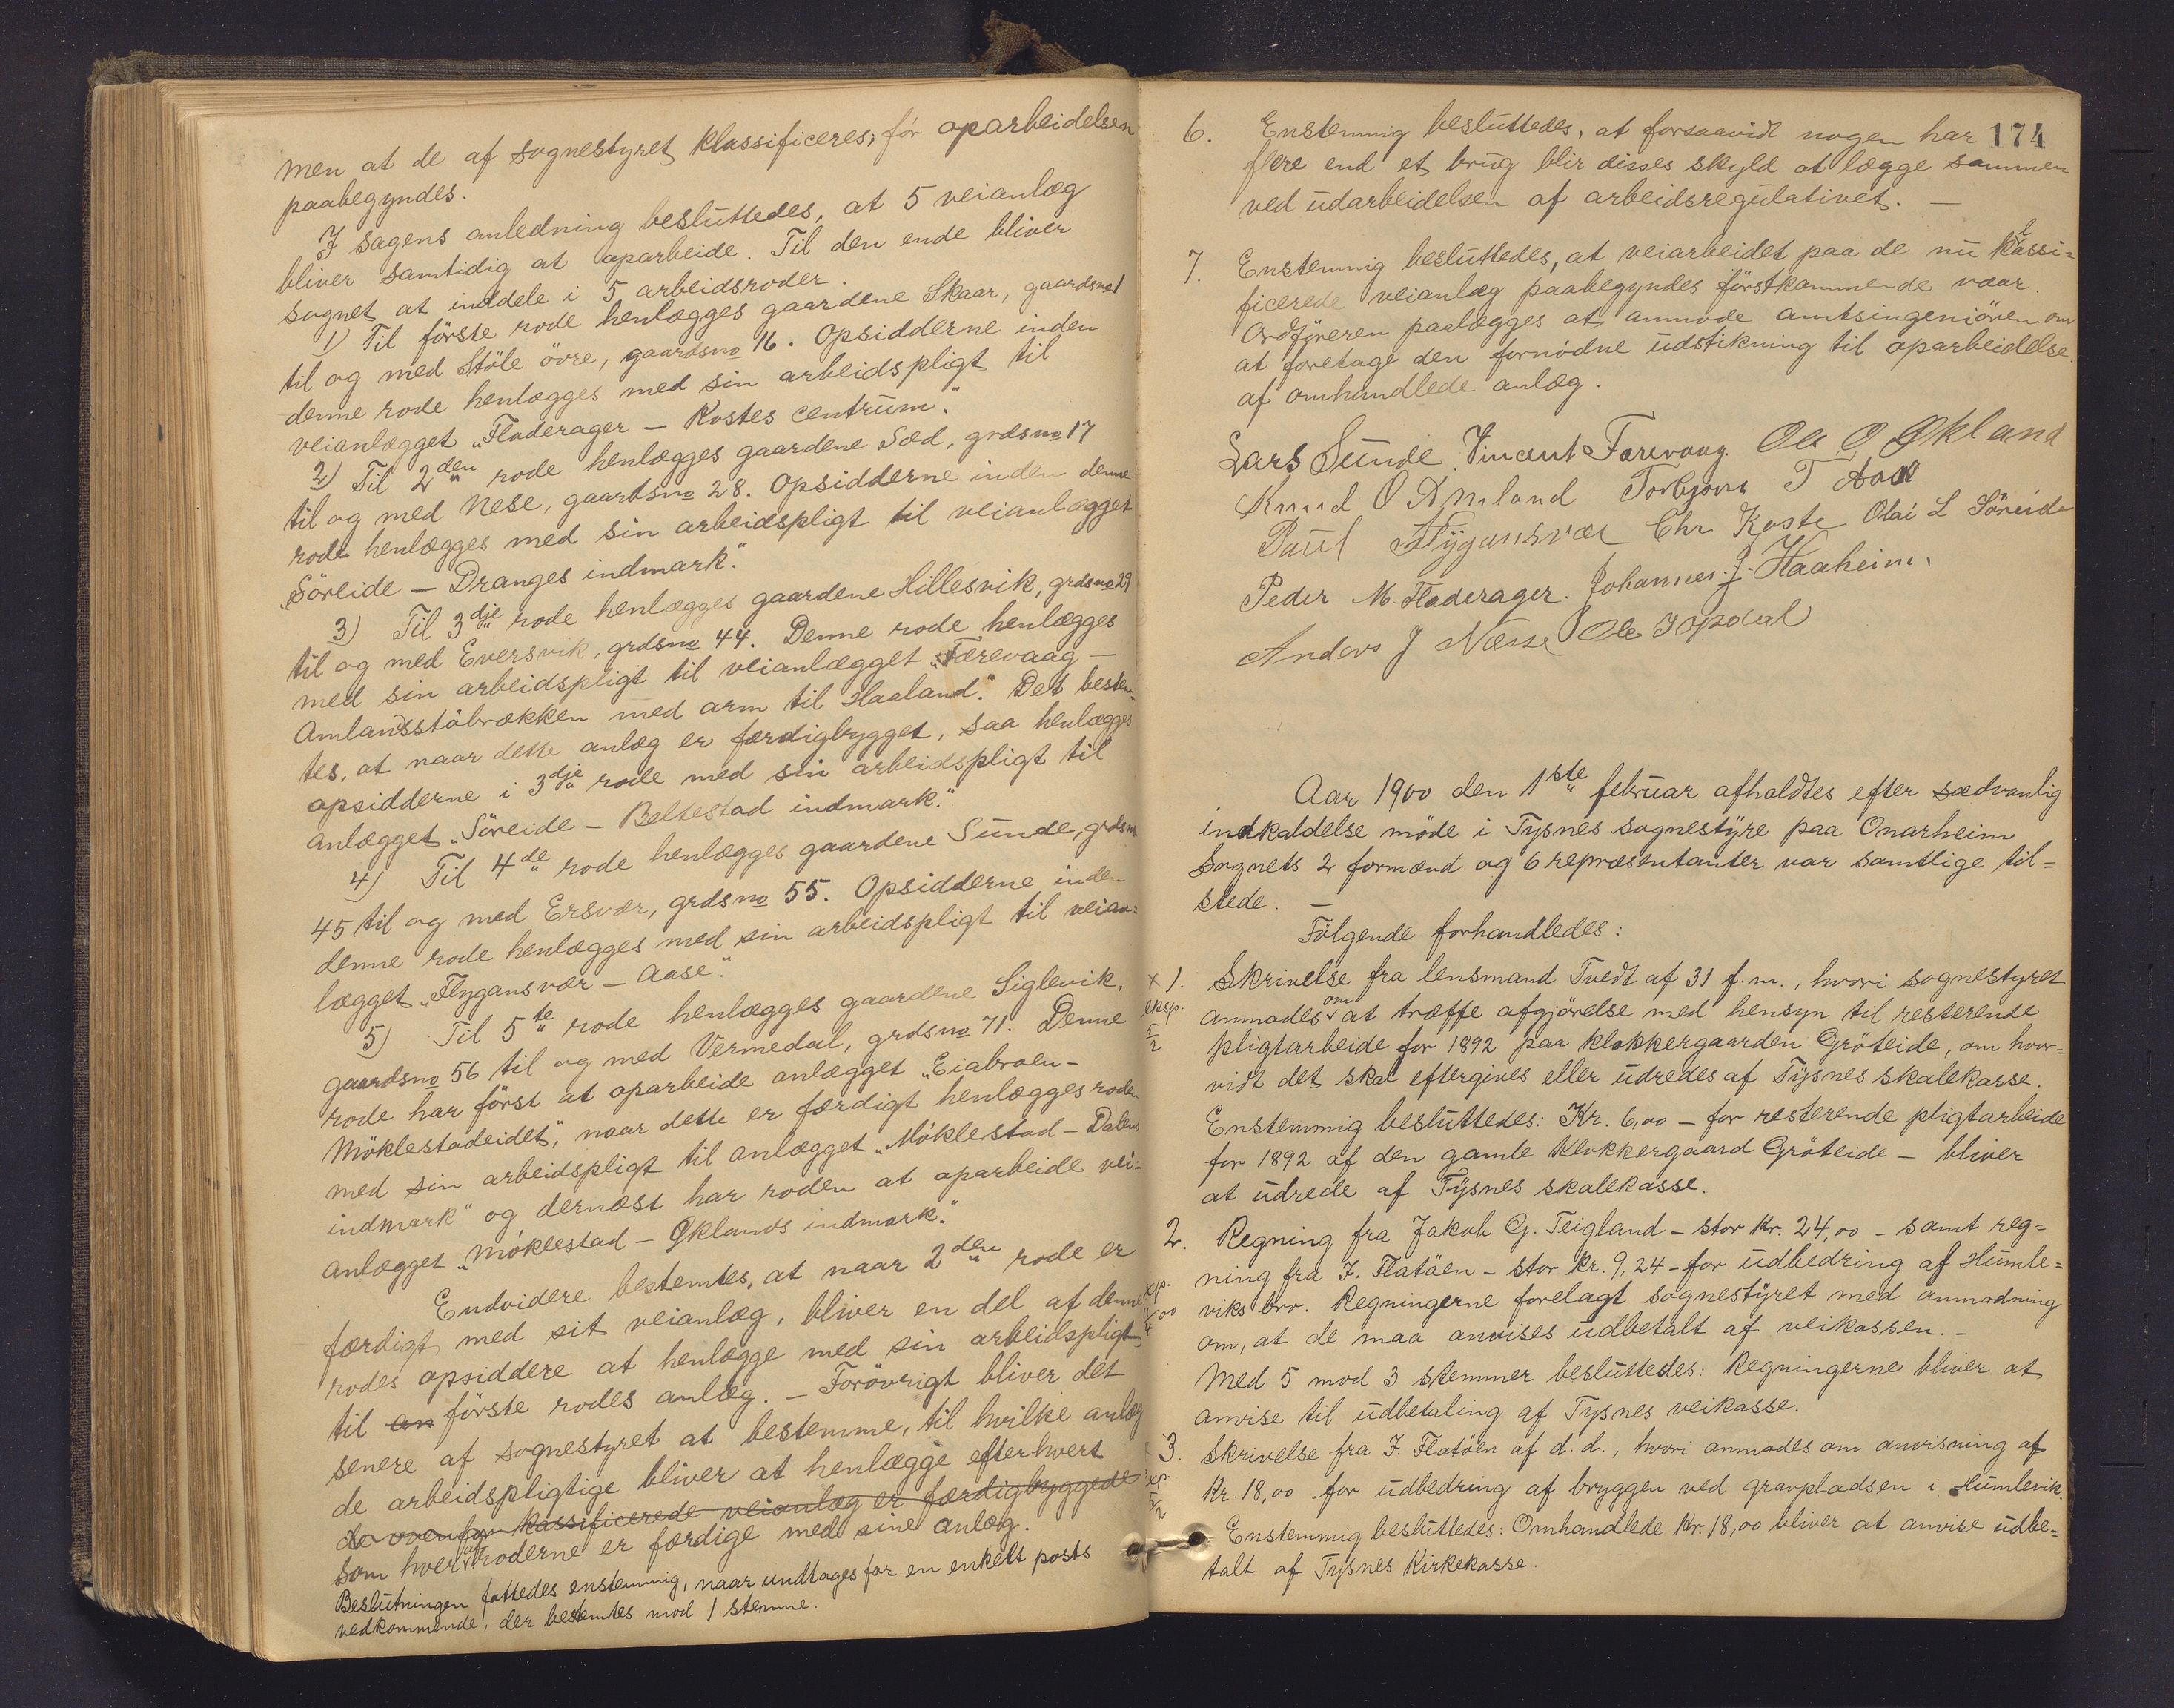 men at de af sognestyret klassificeres, før oparbeidelsen
paabegyndes.
I sagens anledning besluttedes, at 5 veianlæg
bliver samtidig at oparbeide. Til den ende bliver
sognet at inddele i 5 arbeidsroder.
1) Til første rode henlægges gaardene Skaar, gaardsno 1
til og med Støle øvre, gaardsno 16. Opsidderne inden
denne rode henlægges med sin arbeidspligt til
veianlægget „Fladerager – Kostes centrum."
2) Til 2den rode henlægges gaardene Sæd, grdsno 17
til og med Nese, gaardsno 28. Opsidderne inden denne
rode henlægges med sin arbeidspligt til veianlægget
„Søreide – Dranges indmark."
3) Til 3dje rode henlægges gaardene Hillesvik, grdsno 29
til og med Eversvik, grdsno 44. Denne rode henlægges
med sin arbeidspligt til veianlægget „Færevaag –
Amlandsstøbrækken med arm til Haaland." Det bestem-
tes, at naar dette anlæg er færdigbygget, saa henlægges
opsidderne i 3dje rode med sin arbeidspligt til
anlægget „Søreide – Beltestad indmark."
4) Til 4de rode henlægges gaardene Sunde, grdsno
45 til og med Ersvær, grdsno 55. Opsidderne inden
denne rode henlægges med sin arbeidspligt til veian=
lægget „Flygansvær – Aase".
5) Til 5te rode henlægges gaardene Siglevik,
gaardsno 56 til og med Vermedal, grdsno 71. Denne
rode har først at oparbeide anlægget „Eiabroen –
Møklestadeidet", naar dette er færdigt henlægges roden
med sin arbeidspligt til anlægget „Møklestad – Dalens
indmark" og dernæst har roden at oparbeide vei=
anlægget „Møklestad – Øklands indmark."
Endvidere bestemtes, at naar 2den rode er
færdigt med sit veianlæg, bliver en del af denne
rodes opsiddere at henlægge med sin arbeidspligt
til an første rodes anlæg. – Forøvrigt bliver det
senere af sognestyret at bestemme, til hvilke anlæg
de arbeidspligtige bliver at henlægge efterhvert
de ovenfor klassificerede veianlæg er færdigbyggede
som hver af roderne er færdige med sine anlæg.
Beslutningen fattedes enstemmig, naar undtages for en enkelt posts
vedkommende, der bestemtes mod 1 stemme.
174
6. Enstemmig besluttedes, at forsaavidt nogen har
flere end et brug blir disses skyld at lægge sammen
ved udarbeidelsen af arbeidsregulativet. –
7. Enstemmig besluttedes, at veiarbeidet paa de nu klassi=
ficerede veianlæg paabegyndes førstkommende vaar.
Ordføreren paalægges at anmode amtsingeniøren om
at foretage den fornødne udstikning til oparbeidelse
af omhandlede anlæg.
Lars Sunde. Vincent Færevaag. Ole O Økland
Knud O Amland Torbjørn T Aase
Paul Flygansvær Chr Koste Olai L Søreide
Peder M. Fladerager. Johannes J. Haaheim.
Anders J Næsse Ole Opdal
Aar 1900 den 1ste februar afholdtes efter sædvanlig
indkaldelse møde i Tysnes sognestyre paa Onarheim
Sognets 2 formænd og 6 repræsentanter var samtlige til=
stede. –
Følgende forhandledes:
x 1. Skrivelse fra lensmand Tvedt af 31 f.m., hvori sognestyret
eksp. anmodes om at træffe afgjørelse med hensyn til resterende
5/2 pligtarbeide for 1892 paa klokkergaarden Grøteide, om hvor=
vidt det skal eftergives eller udredes af Tysnes skolekasse.
Enstemmig besluttedes: Kr. 6,00 – for resterende pligtarbeide
for 1892 af den gamle Klokkergaard Grøteide – bliver
at udrede af Tysnes skolekasse.
2. Regning fra Jakob G. Teigland – stor kr. 24,00 – samt reg=
ning fra J. Flatøen – stor kr. 9,24 – for udbedring af Humle=
viks bro. Regningerne forelagt sognestyret med anmodning
om, at de maa anvises udbetalt af veikassen. –
Med 5 mod 3 stemmer besluttedes: Regningerne bliver at
anvise til udbetaling af Tysnes veikasse.
3. Skrivelse fra J. Flatøen af d.d., hvori anmodes om anvisning af
xp. 5/2 Kr. 18,00 for udbedring af bryggen ved gravpladsen i Humlevik.
Enstemmig besluttedes: Omhandlede Kr. 18,00 bliver at anvise udbe=
talt af Tysnes Kirkekasse.